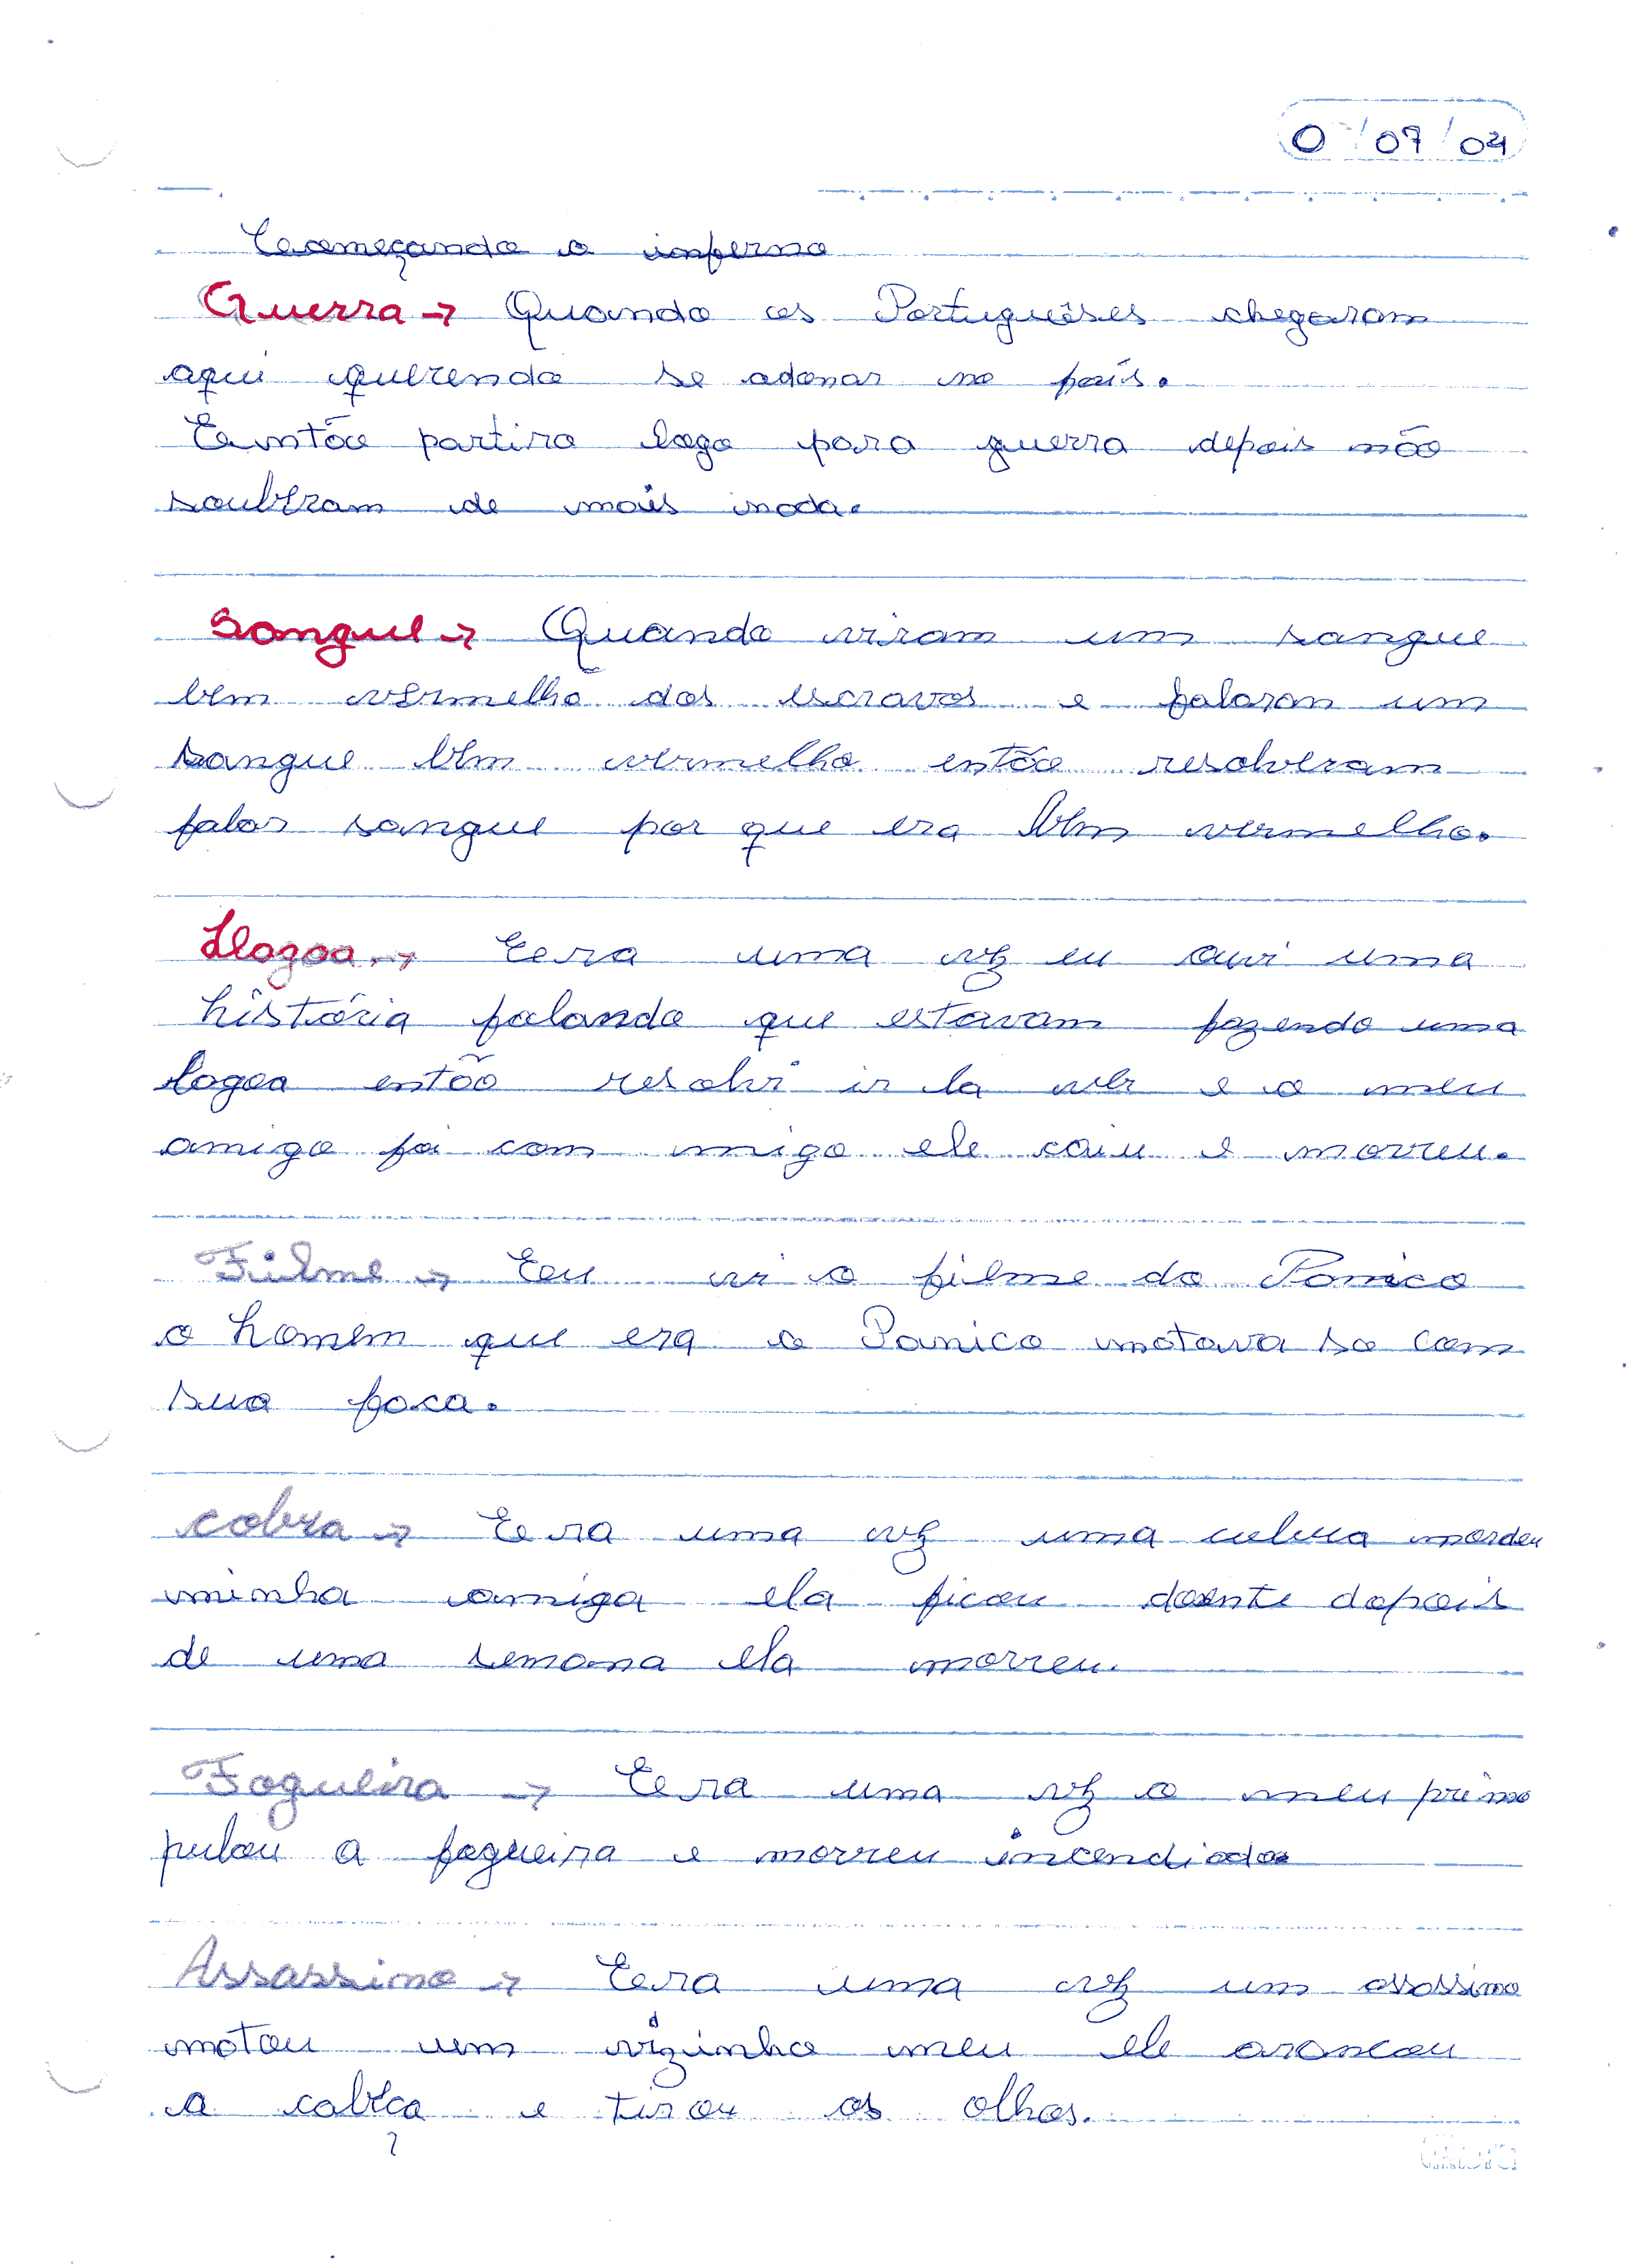 0 / 07 / 04
Começando o inferno
Guerra → Quando os Portuguêses chegaram
aqui querendo se adonar no país.
Então partira logo para guerra depois não
souberam de mais nada.
Sangue → Quando viram um sangue
bem vermelho dos escravos e falaram um
sangue bem vermelho então resolveram
falar sangue por que era bem vermelho.
Llagoa → Era uma vez eu ouvi uma
história falando que estavam fazendo uma
lagoa então resolvi ir la ver e o meu
amigo foi com migo ele caiu e morreu.
Filme → Eu vi o filme do Panico
o homem que era o Panico matava so com
sua faca.
Cobra → Era uma vez uma cobra mordeu
minha amiga ela ficou doente depois
de uma semana ela morreu.
Fogueira → Era uma vez o meu primo
pulou a fogueira e morreu incendiado
Assassino → Era uma vez um assassino
matou um vizinho meu ele arancou
a cabeça e tirou os olhos.